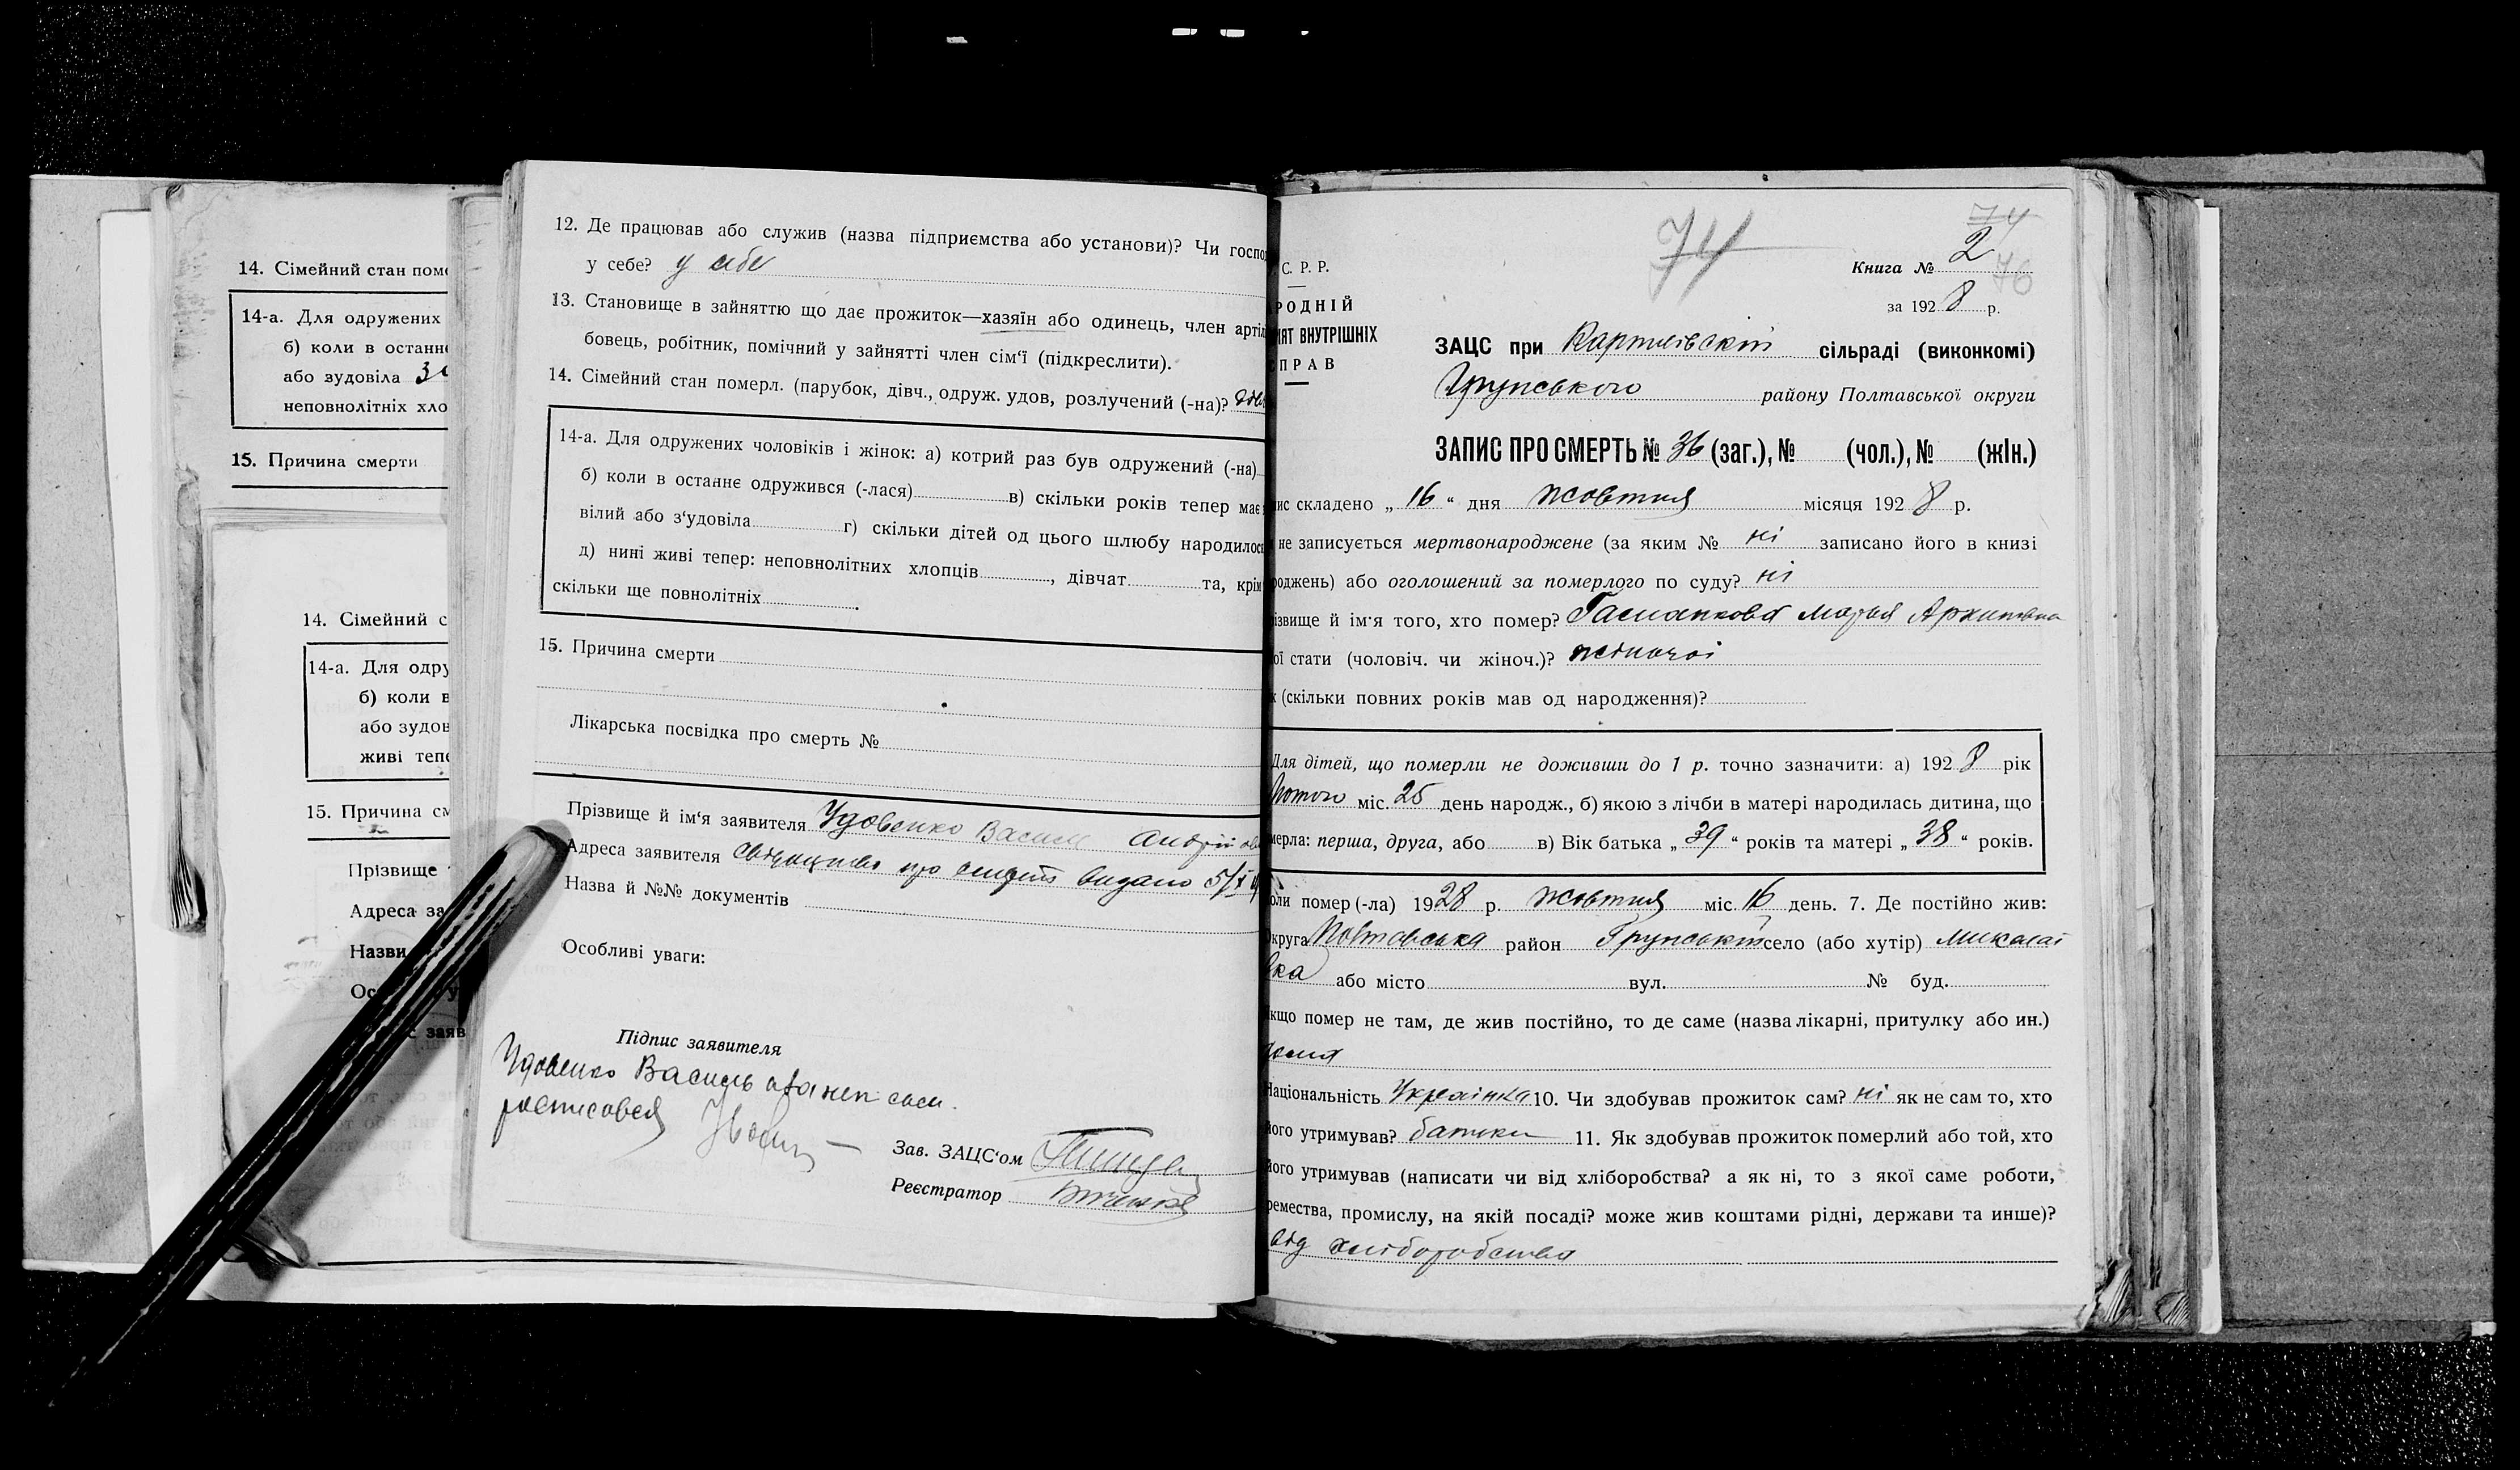 14. Сімейний стан поме
14-а. Для одружених
б) коли в останнє
або зудовіла
неповнолітніх хло
15. Причина смерти
14. Сімейний с
14-а. Для одру
б) коли в
або зудов
живі тепе
15. Причина см
Прізвище
Адреса за
Назви
заяв
12. Де працював або служив (назва підприємства або установи)? Чи господ
у себе? у себе
13. Становище в зайняттю що дає прожиток—хазяїн або одинець, член артіл
бовець, робітник, помічний у зайнятті член сім‘ї (підкреслити).
14. Сімейний стан померл. (парубок, дівч., одруж. удов, розлучений (-на)?
14-а. Для одружених чоловіків і жінок: а) котрий раз був одружений (-на)
б) коли в останнє одружився (-лася) в) скільки років тепер має
вілий або з‘удовіла г) скільки дітей од цього шлюбу народилось
д) нині живі тепер: неповнолітних хлопців , дівчат та, крім
скільки ще повнолітніх .
15. Причина смерти
Лікарська посвідка про смерть №
Прізвище й ім‘я заявителя Удовенко Василь Андрійов
Адреса заявителя про видано 5/X
Назва й №№ документів
Особливі уваги:
Підпис заявителя
Удовенко Василь
росписовся
Зав. ЗАЦС‘ом
Реєстратор
74
74
2
Книга №
76
за 1928 р.
С. Р. Р.
РОДНІЙ
ІЯТ ВНУТРІШНІХ
ПРАВ
ЗАЦС при сільраді (виконкомі)
Грунського району Полтавської округи
ЗАПИС ПРО СМЕРТЬ № 36 (заг.), № (чол.), № (жін.)
ис складено „ 16 “ дня жовтня місяця 1928 р.
не записується мертвонароджене (за яким № ні записано його в книзі
роджень) або оголошений за померлого по суду? ні
ізвище й ім‘я того, хто помер? Марья Архиповна
ої стати (чоловіч. чи жіноч.)? жіночої
к (скільки повних років мав од народження)?
Для дітей, що померли не доживши до 1 р. точно зазначити: а) 1928 рік
Лютого міс. 25 день народж., б) якою з лічби в матері народилась дитина, що
мерла: перша, друга, або в) Вік батька „ 39 “ років та матері „ 38 “ років.
оли помер (-ла) 1928 р. жовтня міс. 16 день. 7. Де постійно жив:
Округа Полтавська район Грунський село (або хутір) Миколаї
вка або місто вул. № буд.
кщо помер не там, де жив постійно, то де саме (назва лікарні, притулку або ин.)
дома
Національність Українка 10. Чи здобував прожиток сам? ні як не сам то, хто
його утримував? батьки 11. Як здобував прожиток померлий або той, хто
його утримував (написати чи від хліборобства? а як ні, то з якої саме роботи,
ремества, промислу, на якій посаді? може жив коштами рідні, держави та инше)?
від хліборобства